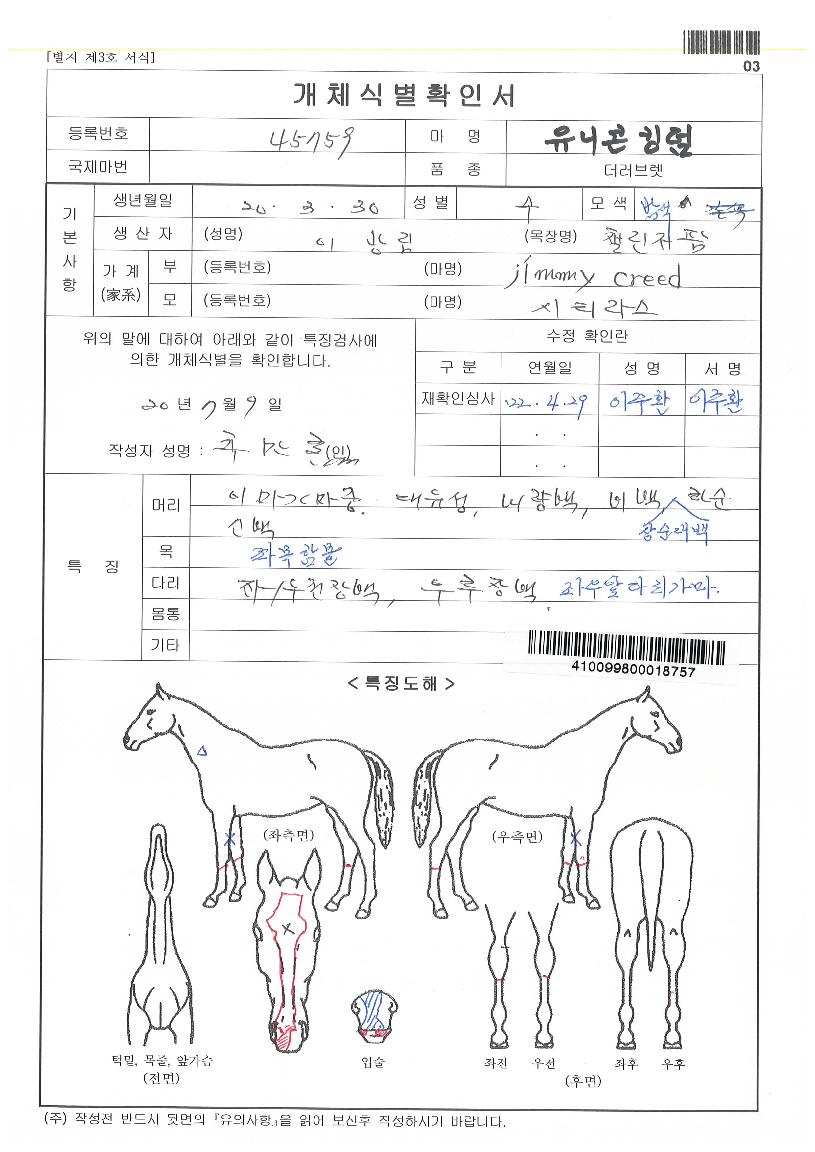 03
[별지 제3호 서식]
개체식별확인서
등록번호 45759 마 명 유니콘킹덤
국제마번 품 종 더러브렛
기본사항
생년월일 20. 3. 30 성별 수 모색 밤색
생산자 (성명) 이광림 (목장명) 챌린저팜
가계 (家系) 부 (등록번호) (마명) jimmy creed
모 (등록번호) (마명) 시티라스
위의 말에 대하여 아래와 같이 특징검사에
의한 개체식별을 확인합니다.
20년 7월 9일
작성자 성명 : (인)
수정 확인란
구분 연월일 성명 서명
재확인심사 '22. 4. 29 이주환 이주환
. .
. .
특 징
머리 이마가마중, 대유성, 비량백, 비백
하순대백
목 좌목함몰
다리 좌우전장백, 우후장백 좌우앞다리가마.
몸통
기타
410099800018757
< 특징도해 >
(좌측면)
(우측면)
턱밑, 목줄, 앞가슴
(전면)
입술
좌전 우전
좌후 우후
(후면)
(주) 작성전 반드시 뒷면의 『유의사항』을 읽어 보신후 작성하시기 바랍니다.